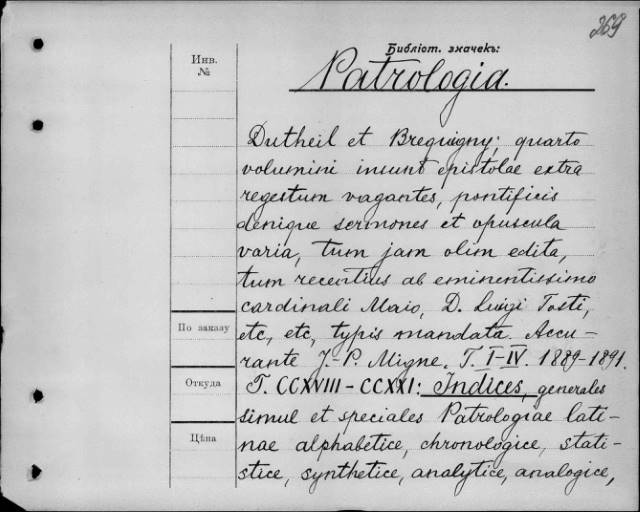 269
Инв.
№
Библіот. значекъ:
Patrologia.
Dutheil et Brequigny; quarto
volumini insunt epistolae extra
regestum vagantes, pontificis
denique sermones et opuscula
varia, tum jam olim edita,
tum recentius ab eminentissimo
cardinali Maio, D. Luigi Tosti,
etc, etc, typis mandata. Accu-
rante J.-P. Migne. T. I-IV. 1889-1891.
T. CCXVIII-CCXXI: Indices, generales
simul et speciales Patrologiae lati-
nae alphabetice, chronologice, stati-
stice, synthetice, analytice, analogice,
По заказу
Откуда
Цѣна